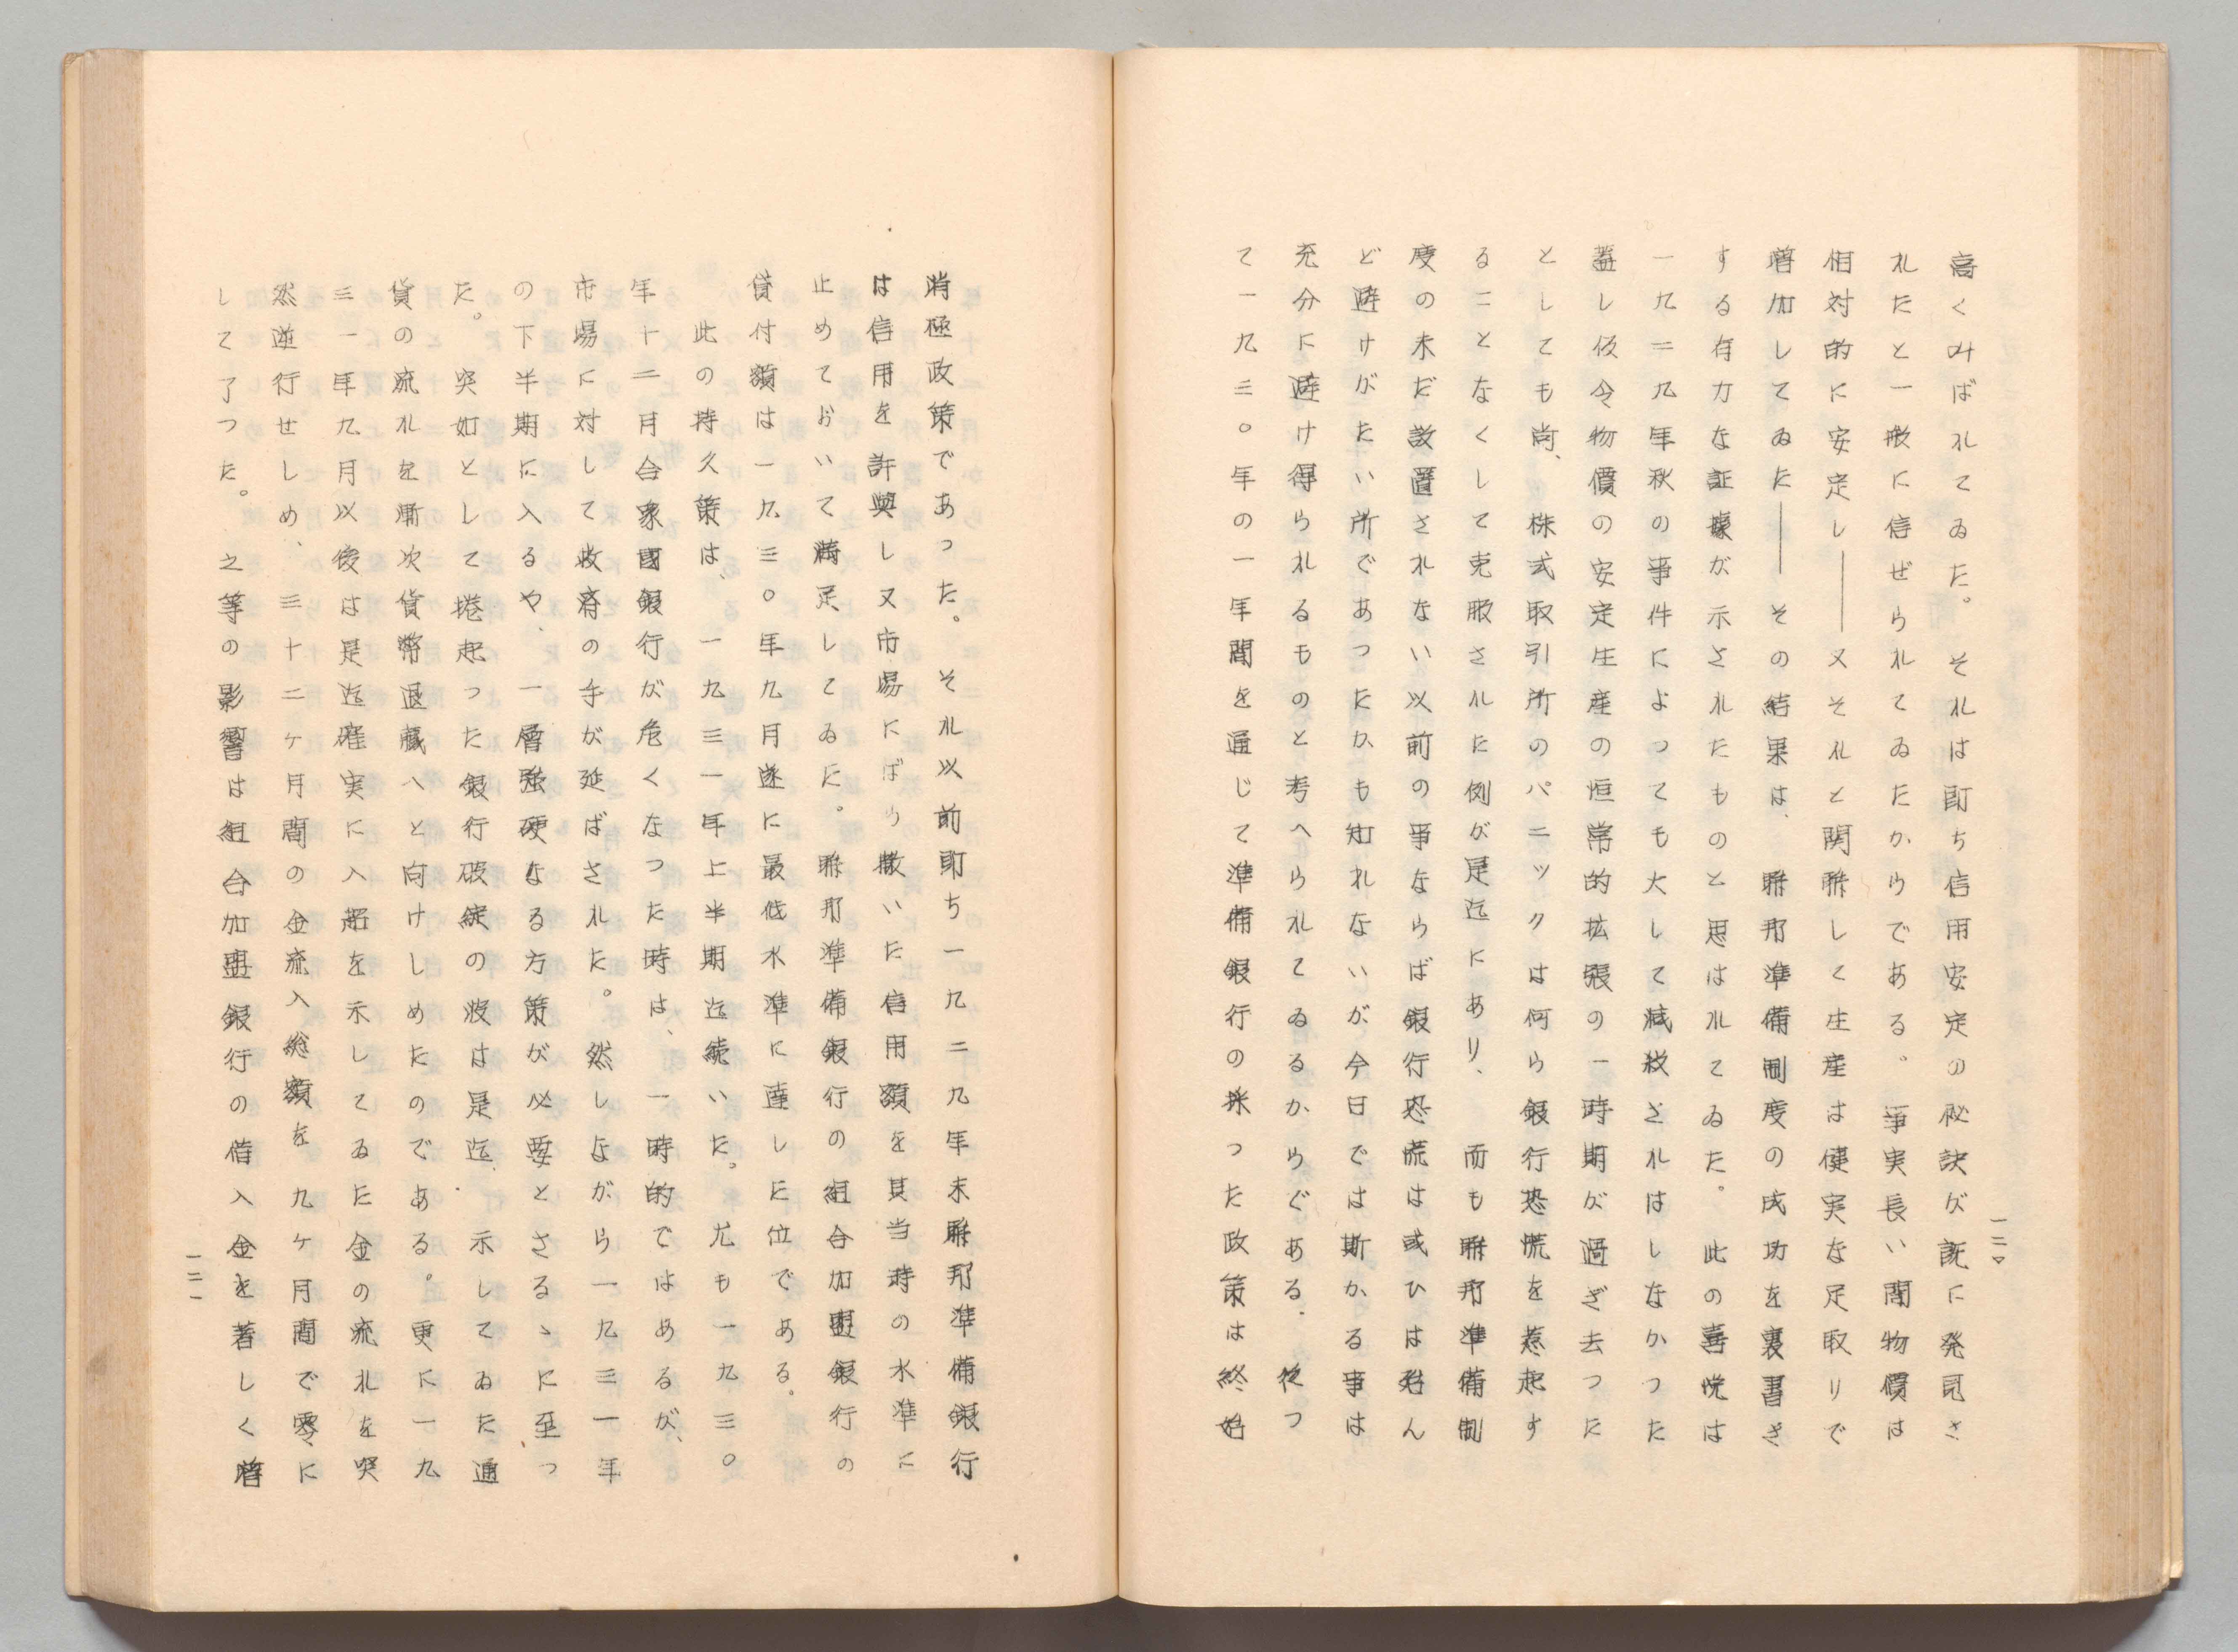 高くみばれてゐた。それは即ち信用安定の秘訣が茲に発見さ
れたと一般に信ぜられてゐたからである。事実長い間物價は
相対的に安定し――又それと関聯して生産は健実な足取りで
増加してゐた――その結果は、聯邦準備制度の成功を裏書き
する有力な証據が示されたものと思はれてゐた。此の喜悦は
一九二九年秋の事件によっても大して減殺されはしなかった
蓋し仮令物價の安定生産の恒常的拡張の一時期が過ぎ去った
としても尚、株式取引所のパニックは何ら銀行恐慌を惹起す
ることなくして克服された例が是迄にあり、而も聯邦準備制
度の未だ設置されない以前の事ならば銀行恐慌は或ひは殆ん
ど避けがたい所であったかも知れないが今日では斯かる事は
充分に避け得られるものと考へられてゐるからぐある.従つ
て一九三〇年の一年間を通じて準備銀行の採った政策は終始
一二〇
消極政策であった。それ以前即ち一九二九年末聯邦準備銀行
は信用を許與し又市場にばら撒いた信用額を其当時の水準に
止めておいて満足してゐた。聯邦準備銀行の組合加盟銀行の
貸付額は一九三〇年九月遂に最低水準に達した位である。
此の持久策は、一九三一年上半期迄続いた。尤も一九三〇
年十二月合衆國銀行が危くなった時は、一時的ではあるが、
市場に対して救済の手が延ばされた。然しながら一九三一年
の下半期に入るや、一層強硬なる方策が必要とさるゝに至っ
た。突如として捲起った銀行破綻の波は是迄、示してゐた通
貨の流れを漸次貨幣退藏へと向けしめたのである。更に一九
三一年九月以後は是迄確実に入超を示してゐた金の流れを突
然逆行せしめ、三十二ヶ月間の金流入総額を九ヶ月間で零に
して了つた。之等の影響は組合加盟銀行の借入金を著しく増
一二一